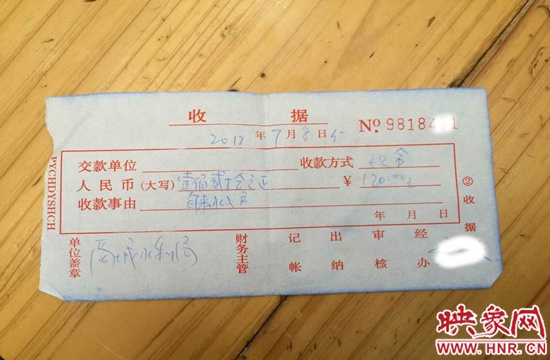 收 据
2017 年 7 月 8 日
No. 9818
交款单位 收款方式 现金
人民币(大写) 壹佰贰十元正 ￥ 120.00元
收款事由 自来水
年 月 日
② 收据
PYCHDYSHCH
单位盖章 水利局
财务主管 记帐 出纳 审核 经办
映象网
WWW.HNR.CN